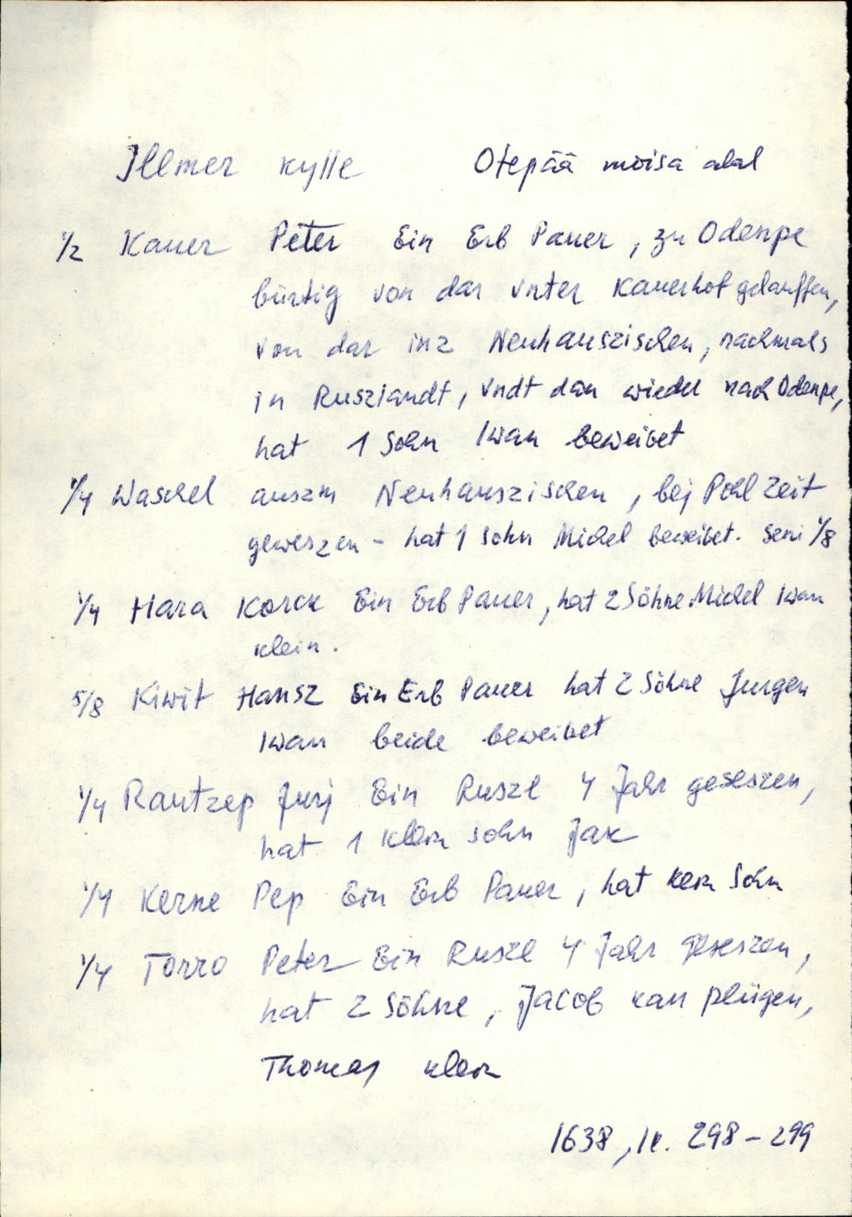 Illmer Kylle Otepää mõisa alal
1/2 Kauer Peter Ein Erb Pauer, zu Odenpe
bürtig von dar vnter Kauerhof gelauffen,
von dar inz Neuhauszischen, nachmals
in Ruszlandt, vndt dan wieder nach Odenpe,
hat 1 Sohn Iwan beweibet
1/4 Waschel auszm Neuhauszischen, bej Pohl Zeit
geweszen - hat 1 Sohn Michel beweibet. 1/8
1/4 Hara Korck Ein Erb Pauer, hat 2 Söhne Michel Iwan
klein.
5/8 Kiwit Hansz Ein Erb Pauer hat 2 Söhne Jurgen
Iwan beide beweibet
1/4 Rautzep Jurj Ein Rusze 4 Jahr geseszen,
hat 1 klein Sohn Jak
1/4 Kerne Pep Ein Erb Pauer, hat kein Sohn
1/4 Torro Peter Ein Rusze 4 Jahr geseszen,
hat 2 Söhne, Jacob kan plügen,
Thomas klein
1638, lk. 298-299